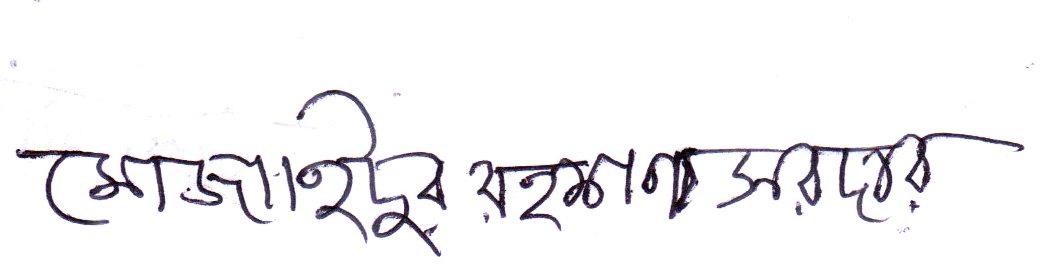 মোজাহীদুর রহমান সরদার